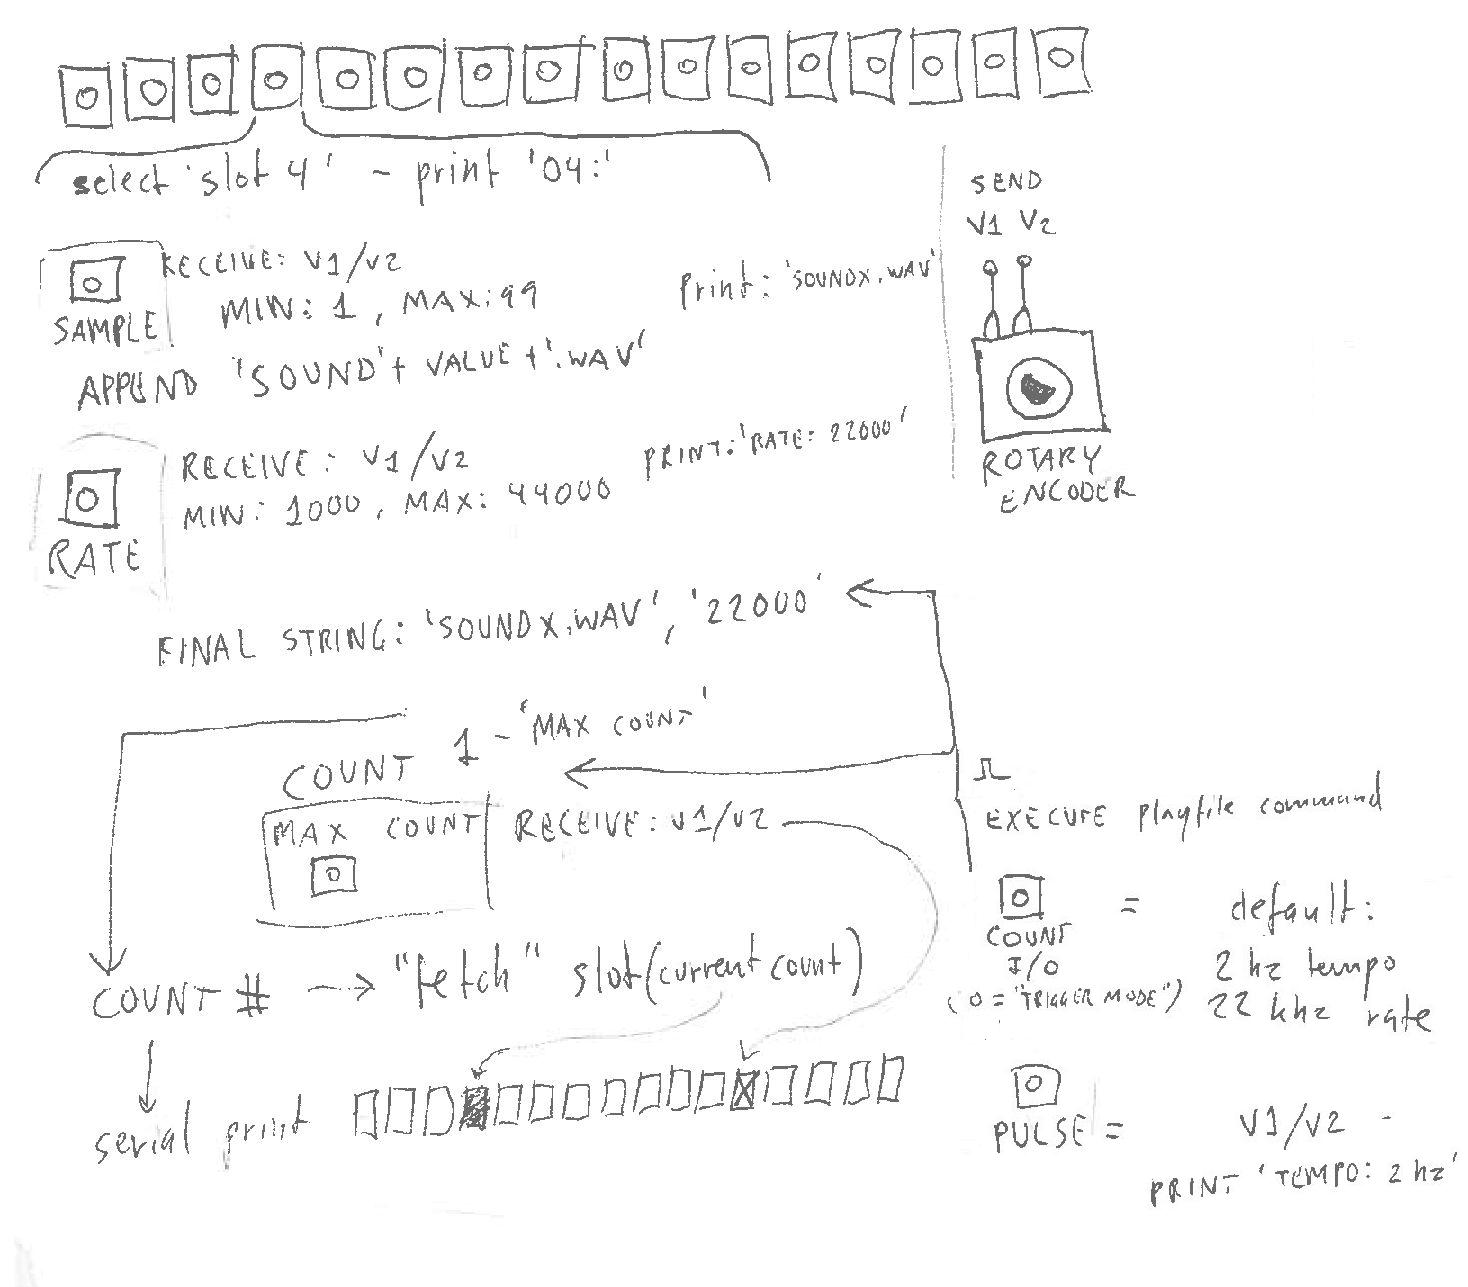 select 'slot 4' - print '04:'
SEND
V1 V2
RECEIVE: V1/V2
MIN: 1, MAX: 99
SAMPLE
print: 'SOUNDX.WAV'
APPEND 'SOUND' + VALUE + '.WAV'
ROTARY
ENCODER
RECEIVE: V1/V2
MIN: 1000, MAX: 44000
RATE
PRINT: 'RATE: 22000'
FINAL STRING: 'SOUNDX.WAV', '22000'
COUNT 1 - 'MAX COUNT'
MAX COUNT
RECEIVE: V1/V2
EXECUTE playfile command
COUNT
I/O
(0 = "TRIGGER MODE")
= default:
2 hz tempo
22 khz rate
COUNT # → "fetch" slot(current count)
serial print
PULSE = V1/V2 -
PRINT 'TEMPO: 2 hz'